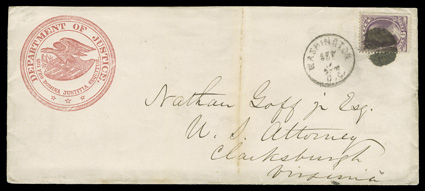 DEPARTMENT OF JUSTICE
QUI PRO DOMINA JUSTITIA SEQUITUR
WASHINGTON
D.C.
Nathan Goff jr Esq.
U. S. Attorney
Clarksburgh
Virginia